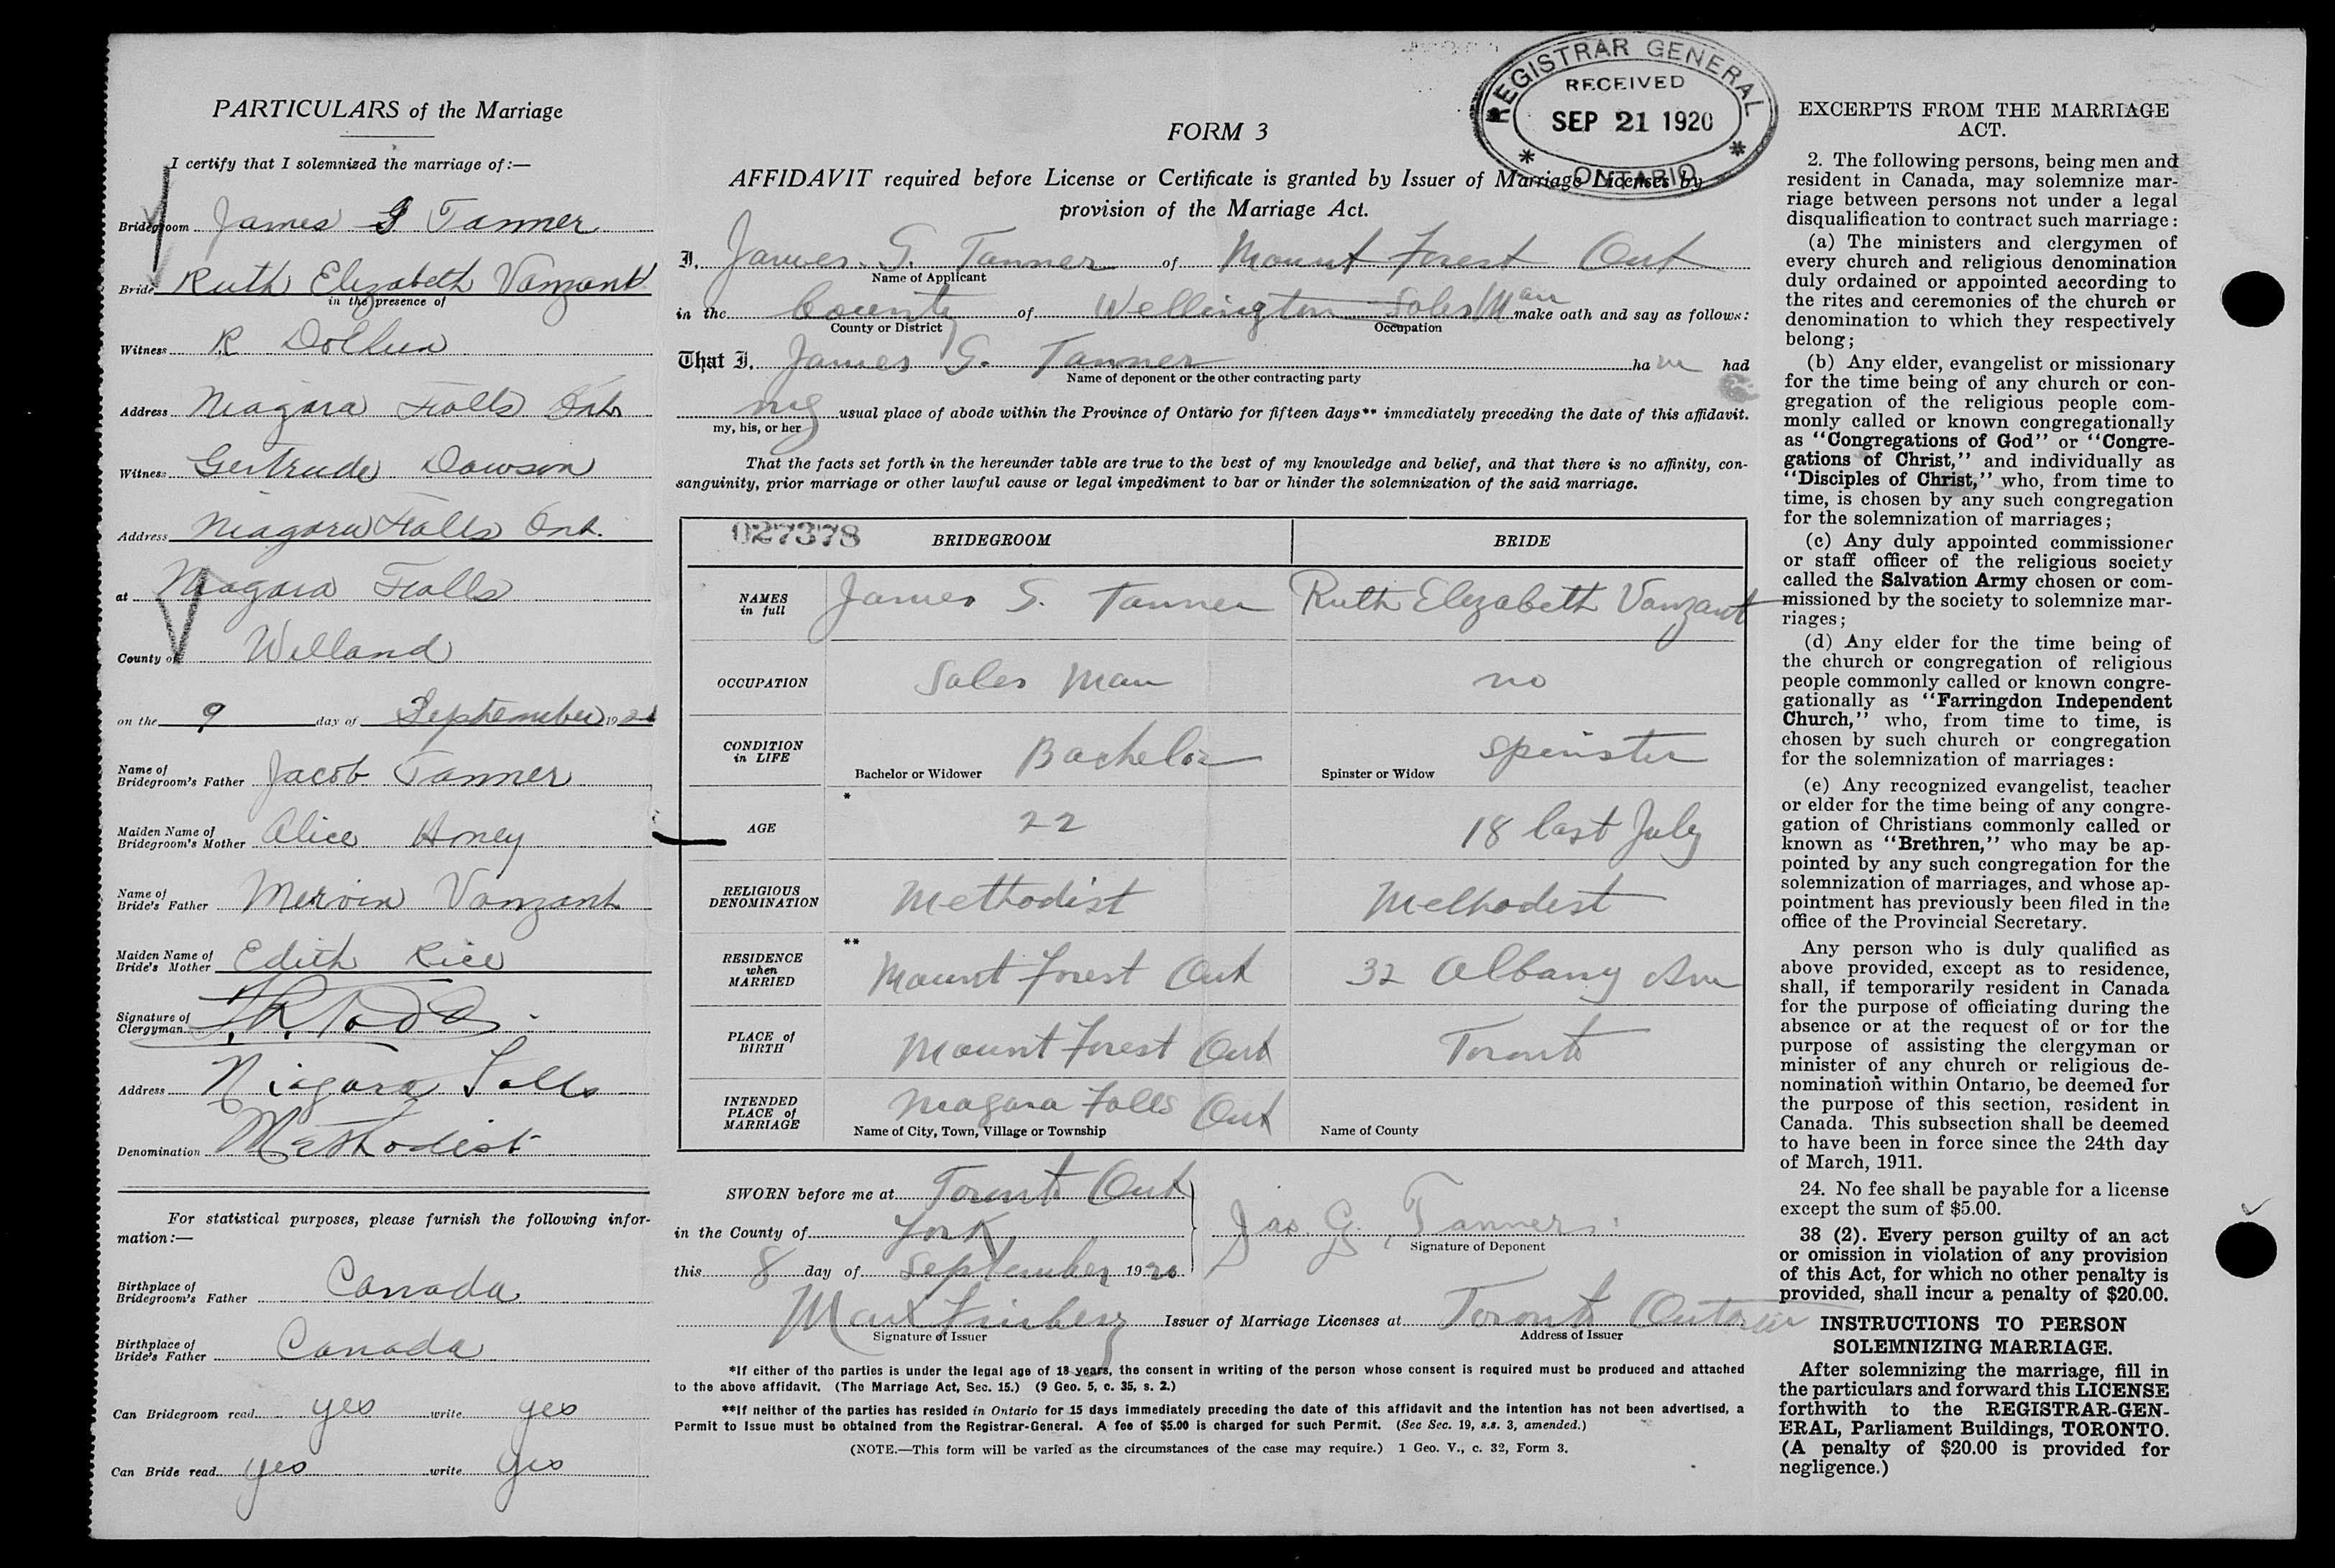 PARTICULARS of the Marriage
I certify that I solemnized the marriage of:—
Bridegroom James G Tanner
Bride Ruth Elizabeth Vanzant
in the presence of
Witness R
Address Niagara Falls Ont
Witness Gertrude Dawson
Address Niagara Falls Ont.
at Niagara Falls
County of Welland
on the 9 day of September 1920
Name of
Bridegroom's Father Jacob Tanner
Maiden Name of
Bridegroom's Mother Alice Honey
Name of
Bride's Father Mervin Vanzant
Maiden Name of
Bride's Mother Edith Rice
Signature of
Clergyman
Address Niagara Falls
Denomination Methodist
For statistical purposes, please furnish the following infor-
mation:—
Birthplace of
Bridegroom's Father Canada
Birthplace of
Bride's Father Canada
Can Bridegroom read yes write yes
Can Bride read yes write yes
REGISTRAR GENERAL
RECEIVED
SEP 21 1920
ONTARIO
FORM 3
AFFIDAVIT required before License or Certificate is granted by Issuer of Marriage Licenses by
provision of the Marriage Act.
I, James. G. Tanner of Mount Forest Ont
Name of Applicant
in the County of Wellington Sales Man make oath and say as follows:
County or District Occupation
That I, James G. Tanner ha ve had
Name of deponent or the other contracting party
my usual place of abode within the Province of Ontario for fifteen days** immediately preceding the date of this affidavit.
my, his, or her
That the facts set forth in the hereunder table are true to the best of my knowledge and belief, and that there is no affinity, con-
sanguinity, prior marriage or other lawful cause or legal impediment to bar or hinder the solemnization of the said marriage.
027378 BRIDEGROOM BRIDE
NAMES
in full James G. Tanner Ruth Elizabeth Vanzant
OCCUPATION Sales Man no
CONDITION
in LIFE Bachelor or Widower Bachelor Spinster or Widow Spinster
AGE * 22 18 last July
RELIGIOUS
DENOMINATION Methodist Methodist
RESIDENCE
when
MARRIED ** Mount Forest Ont 32 Albany Ave
PLACE of
BIRTH Mount Forest Ont Toronto
INTENDED
PLACE of
MARRIAGE Niagara Falls Ont
Name of City, Town, Village or Township Name of County
SWORN before me at Toronto Ont
in the County of York
this 8 day of September 1920
Jas. G. Tanner.
Signature of Deponent
Max Issuer of Marriage Licenses at Toronto Ontario
Signature of Issuer Address of Issuer
*If either of the parties is under the legal age of 18 years, the consent in writing of the person whose consent is required must be produced and attached
to the above affidavit. (The Marriage Act, Sec. 15.) (9 Geo. 5, c. 35, s. 2.)
**If neither of the parties has resided in Ontario for 15 days immediately preceding the date of this affidavit and the intention has not been advertised, a
Permit to Issue must be obtained from the Registrar-General. A fee of $5.00 is charged for such Permit. (See Sec. 19, s.s. 3, amended.)
(NOTE.—This form will be varied as the circumstances of the case may require.) 1 Geo. V., c. 32, Form 3.
EXCERPTS FROM THE MARRIAGE
ACT.
2. The following persons, being men and
resident in Canada, may solemnize mar-
riage between persons not under a legal
disqualification to contract such marriage:
(a) The ministers and clergymen of
every church and religious denomination
duly ordained or appointed according to
the rites and ceremonies of the church or
denomination to which they respectively
belong;
(b) Any elder, evangelist or missionary
for the time being of any church or con-
gregation of the religious people com-
monly called or known congregationally
as "Congregations of God" or "Congre-
gations of Christ," and individually as
"Disciples of Christ," who, from time to
time, is chosen by any such congregation
for the solemnization of marriages;
(c) Any duly appointed commissioner
or staff officer of the religious society
called the Salvation Army chosen or com-
missioned by the society to solemnize mar-
riages;
(d) Any elder for the time being of
the church or congregation of religious
people commonly called or known congre-
gationally as "Farringdon Independent
Church," who, from time to time, is
chosen by such church or congregation
for the solemnization of marriages:
(e) Any recognized evangelist, teacher
or elder for the time being of any congre-
gation of Christians commonly called or
known as "Brethren," who may be ap-
pointed by any such congregation for the
solemnization of marriages, and whose ap-
pointment has previously been filed in the
office of the Provincial Secretary.
Any person who is duly qualified as
above provided, except as to residence,
shall, if temporarily resident in Canada
for the purpose of officiating during the
absence or at the request of or for the
purpose of assisting the clergyman or
minister of any church or religious de-
nomination within Ontario, be deemed for
the purpose of this section, resident in
Canada. This subsection shall be deemed
to have been in force since the 24th day
of March, 1911.
24. No fee shall be payable for a license
except the sum of $5.00.
38 (2). Every person guilty of an act
or omission in violation of any provision
of this Act, for which no other penalty is
provided, shall incur a penalty of $20.00.
INSTRUCTIONS TO PERSON
SOLEMNIZING MARRIAGE.
After solemnizing the marriage, fill in
the particulars and forward this LICENSE
forthwith to the REGISTRAR-GEN-
ERAL, Parliament Buildings, TORONTO.
(A penalty of $20.00 is provided for
negligence.)